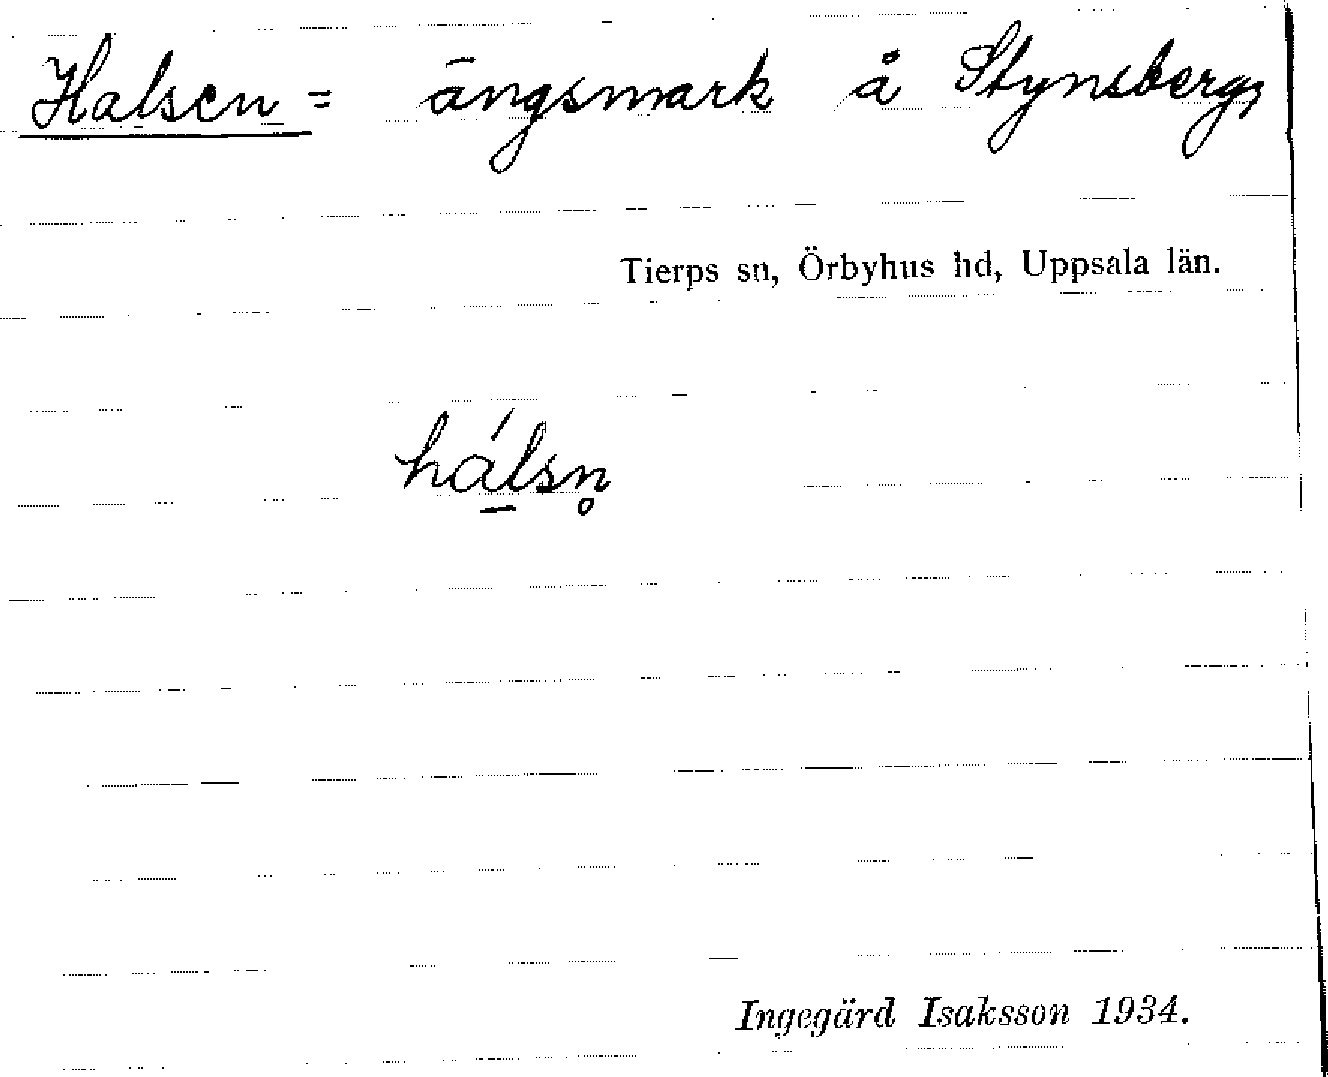 Halsen = ängsmark å Stynsberg,
Tierps sn, Örbyhus hd, Uppsala län.
hál̠sn̥
Ingegärd Isaksson 1934.